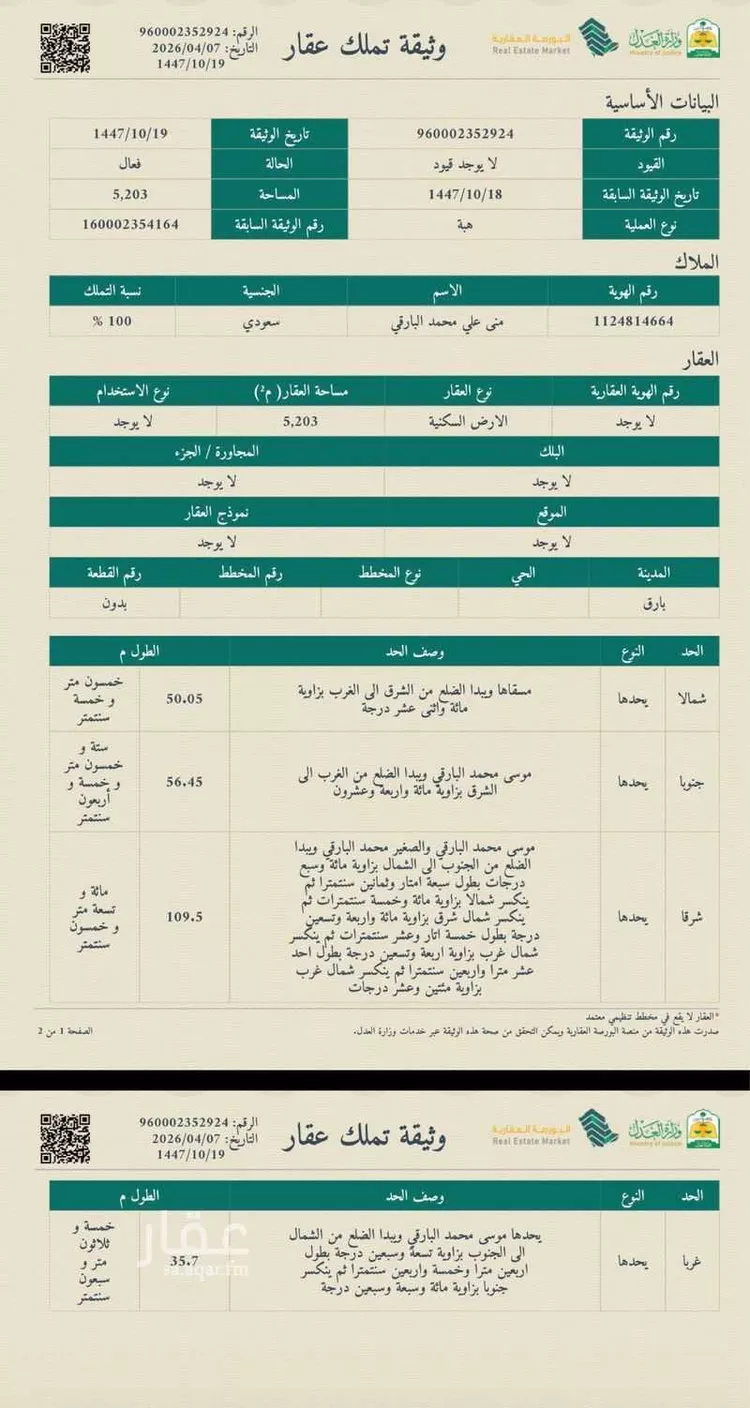 الرقم: 960002352924
التاريخ: 2026/04/07
1447/10/19
وثيقة تملك عقار
البورصة العقارية
Real Estate Market
وزارة العدل
Ministry of Justice
البيانات الأساسية
رقم الوثيقة 960002352924 تاريخ الوثيقة 1447/10/19
القيود لا يوجد قيود الحالة فعال
تاريخ الوثيقة السابقة 1447/10/18 المساحة 5,203
نوع العملية هبة رقم الوثيقة السابقة 160002354164
الملاك
رقم الهوية الاسم الجنسية نسبة التملك
1124814664 منى علي محمد البارقي سعودي 100 %
العقار
رقم الهوية العقارية نوع العقار مساحة العقار( م²) نوع الاستخدام
لا يوجد الارض السكنية 5,203 لا يوجد
البلك المجاورة / الجزء
لا يوجد لا يوجد
الموقع نموذج العقار
لا يوجد لا يوجد
المدينة الحي نوع المخطط رقم المخطط رقم القطعة
بارق بدون
الحد النوع وصف الحد الطول م
شمالا يحدها مسقاها ويبدا الضلع من الشرق الى الغرب بزاوية
مائة واثنى عشر درجة
50.05
خمسون متر
و خمسة
سنتمتر
جنوبا يحدها موسى محمد البارقي ويبدا الضلع من الغرب الى
الشرق بزاوية مائة واربعة وعشرون
56.45
ستة و
خمسون متر
و خمسة و
أربعون
سنتمتر
شرقا يحدها موسى محمد البارقي والصغير محمد البارقي ويبدا
الضلع من الجنوب الى الشمال بزاوية مائة وسبع
درجات بطول سبعة امتار وثمانين سنتمترا ثم
ينكسر شمالا بزاوية مائة وخمسة سنتمترات ثم
ينكسر شمال شرق بزاوية مائة واربعة وتسعين
درجة بطول خمسة اتار وعشر سنتمترات ثم ينكسر
شمال غرب بزاوية اربعة وتسعين درجة بطول احد
عشر مترا واربعين سنتمترا ثم ينكسر شمال غرب
بزاوية مئتين وعشر درجات
109.5
مائة و
تسعة متر
و خمسون
سنتمتر
*العقار لا يقع في مخطط تنظيمي معتمد
صدرت هذه الوثيقة من منصة البورصة العقارية ويمكن التحقق من صحة هذه الوثيقة عبر خدمات وزارة العدل.
الصفحة 1 من 2
الرقم: 960002352924
التاريخ: 2026/04/07
1447/10/19
وثيقة تملك عقار
البورصة العقارية
Real Estate Market
وزارة العدل
Ministry of Justice
الحد النوع وصف الحد الطول م
غربا يحدها يحدها موسى محمد البارقي ويبدا الضلع من الشمال
الى الجنوب بزاوية تسعة وسبعين درجة بطول
اربعين مترا وخمسة واربعين سنتمترا ثم ينكسر
جنوبا بزاوية مائة وسبعة وسبعين درجة
35.7
خمسة و
ثلاثون
متر و
سبعون
سنتمتر
عقار
sa.aqar.fm